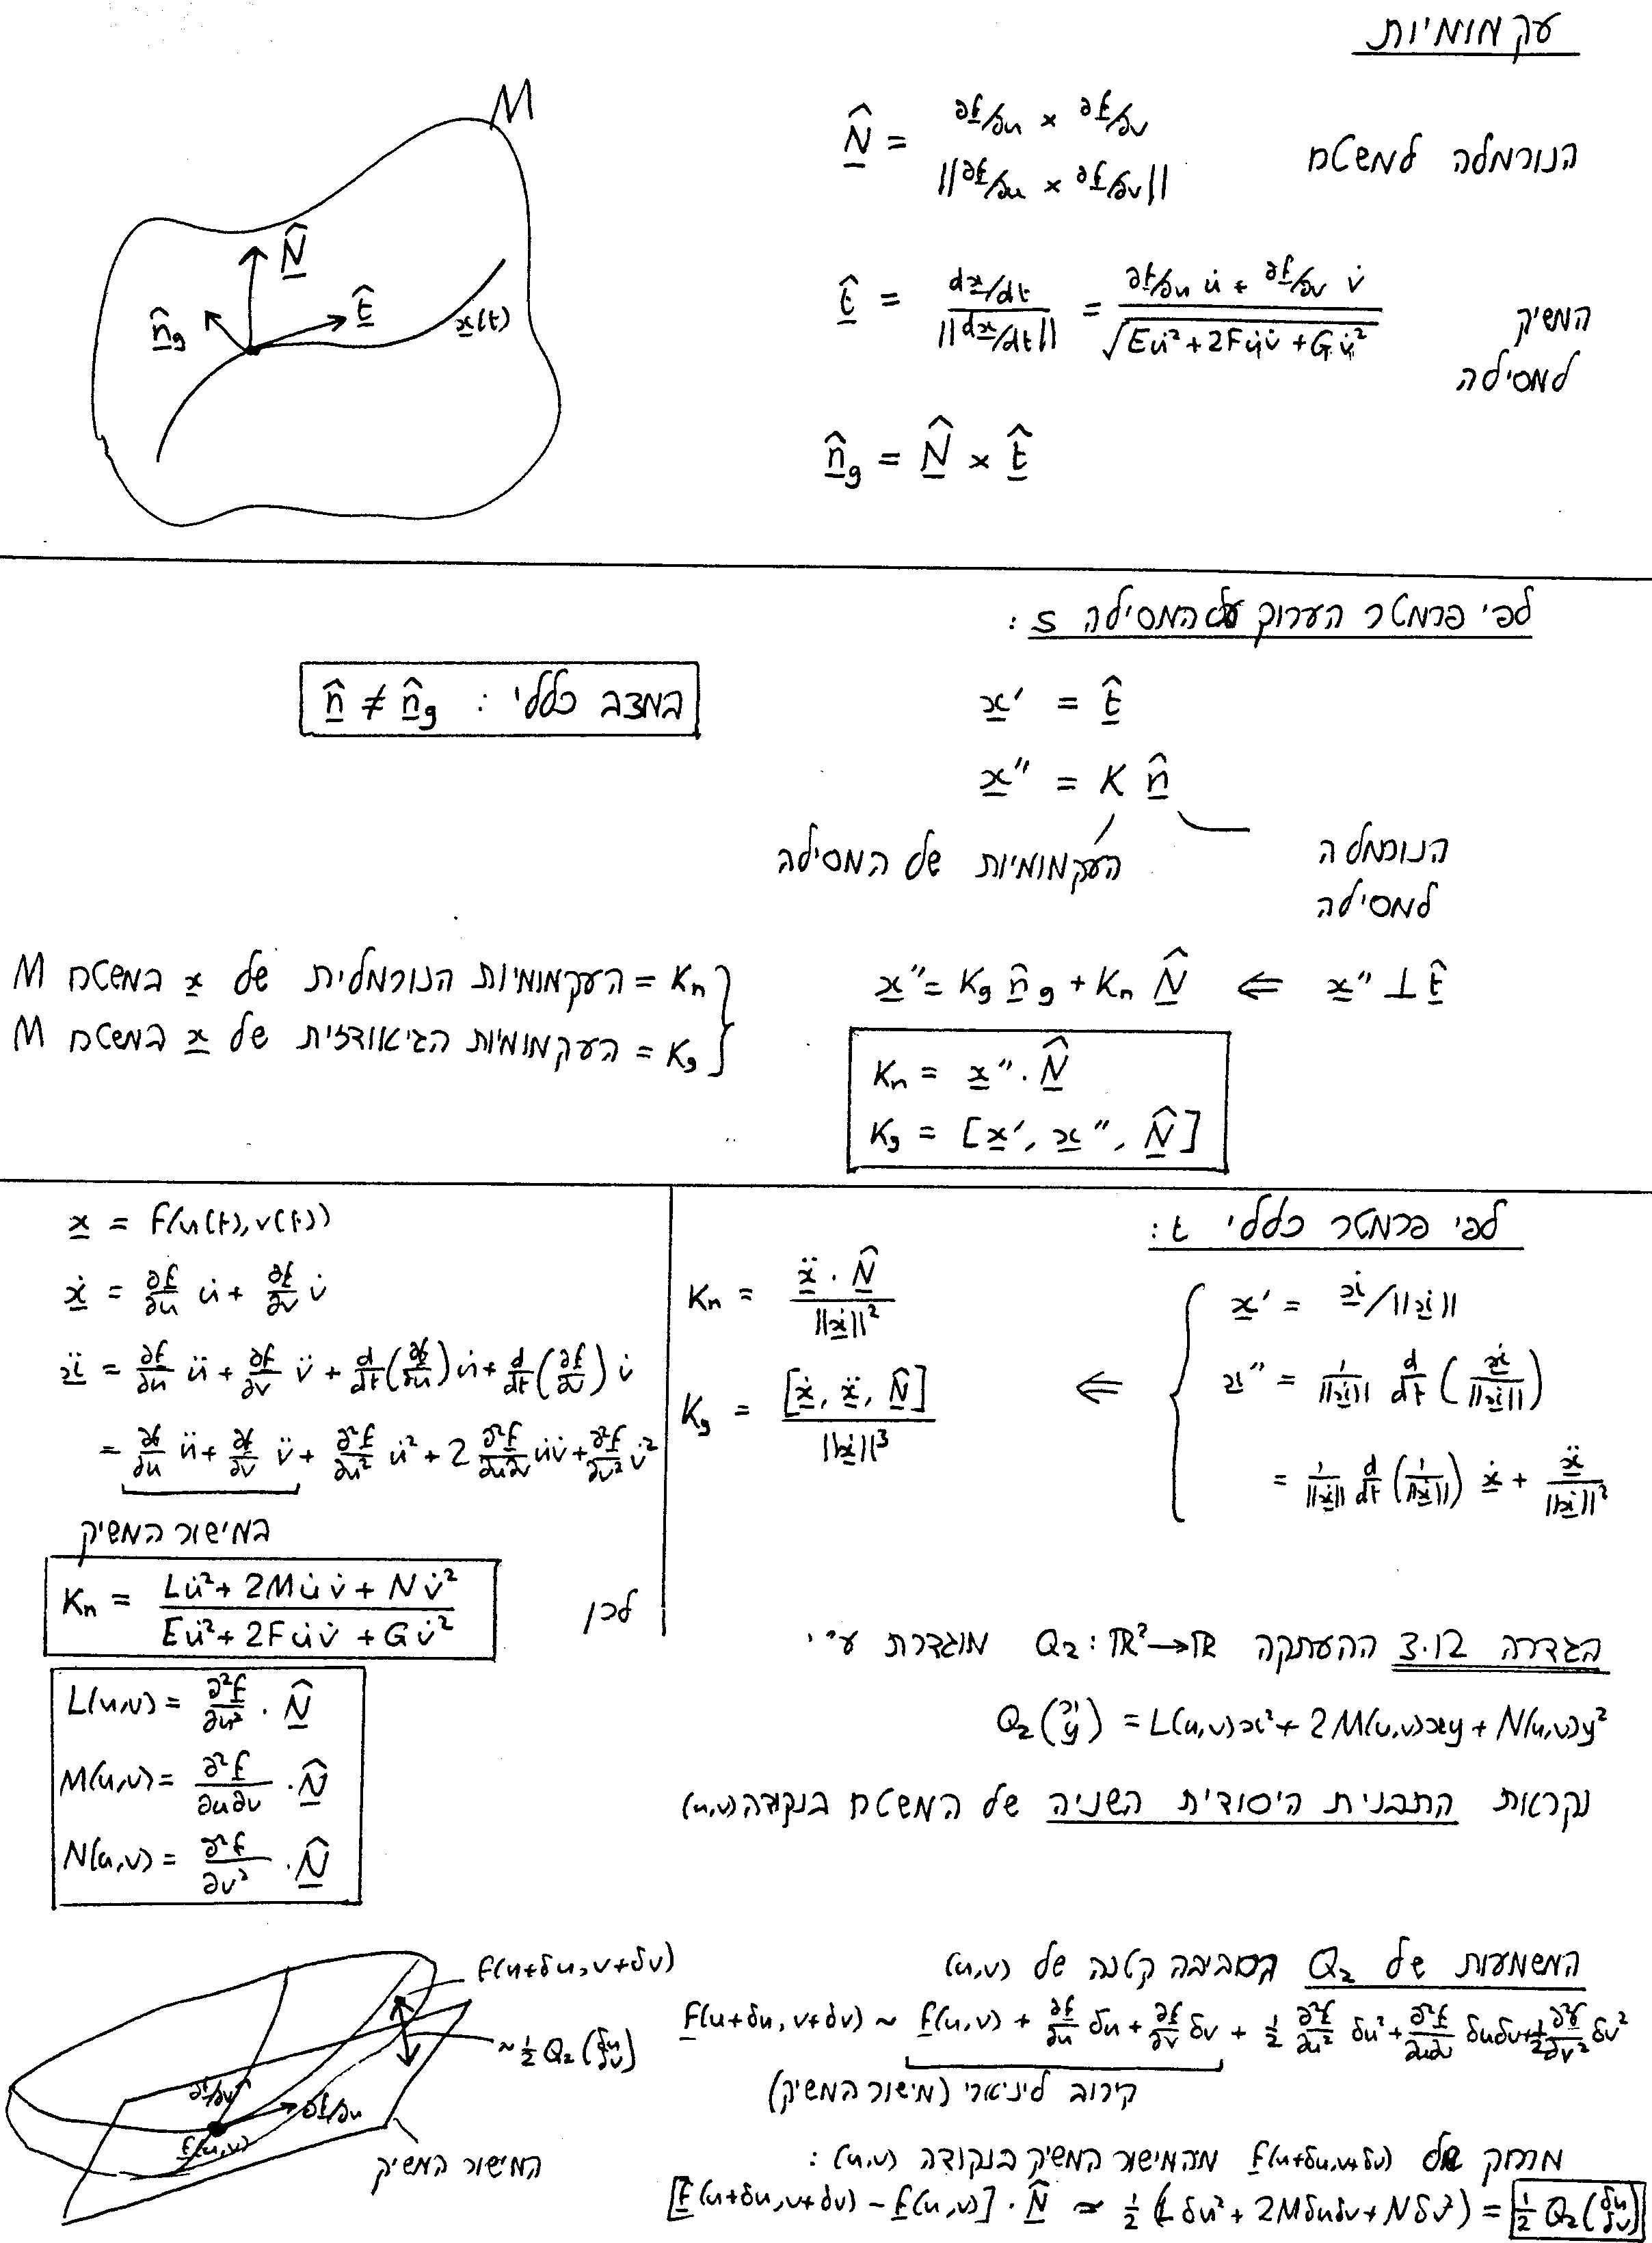 עקמומיות
M
N̂
n̂_g
t̂
x(t)
N̂ = (∂f/∂u × ∂f/∂v) / ||∂f/∂u × ∂f/∂v||
הנורמלה למשטח
t̂ = (dx/dt) / ||dx/dt|| = (∂f/∂u u̇ + ∂f/∂v v̇) / √(Eu̇² + 2Fu̇v̇ + Gv̇²)
המשיק
למסילה
n̂_g = N̂ × t̂
לפי פרמטר הערוך על המסילה s :
במצב כללי : n̂ ≠ n̂_g
x' = t̂
x'' = K n̂
הנורמלה
למסילה
העקמומיות של המסילה
x'' ⊥ t̂ ⇐ x'' = K_g n̂_g + K_n N̂
K_n = העקמומיות הנורמלית של x במשטח M
K_g = העקמומיות הגיאודזית של x במשטח M
K_n = x'' · N̂
K_g = [x', x'', N̂]
לפי פרמטר כללי t :
x' = ẋ / ||ẋ||
x'' = 1/||ẋ|| d/dt (ẋ/||ẋ||)
= 1/||ẋ|| d/dt (1/||ẋ||) ẋ + ẍ/||ẋ||²
⇐
K_n = ẍ · N̂ / ||ẋ||²
K_g = [ẋ, ẍ, N̂] / ||ẋ||³
x = f(u(t), v(t))
ẋ = ∂f/∂u u̇ + ∂f/∂v v̇
ẍ = ∂f/∂u ü + ∂f/∂v v̈ + d/dt(∂f/∂u) u̇ + d/dt(∂f/∂v) v̇
= ∂f/∂u ü + ∂f/∂v v̈ + ∂²f/∂u² u̇² + 2 ∂²f/∂u∂v u̇v̇ + ∂²f/∂v² v̇²
במישור המשיק
לכן
K_n = (Lu̇² + 2Mu̇v̇ + Nv̇²) / (Eu̇² + 2Fu̇v̇ + Gv̇²)
L(u,v) = ∂²f/∂u² · N̂
M(u,v) = ∂²f/∂u∂v · N̂
N(u,v) = ∂²f/∂v² · N̂
הגדרה 3.12 ההעתקה Q₂ : ℝ² → ℝ מוגדרת ע"י
Q₂(x y) = L(u,v)x² + 2M(u,v)xy + N(u,v)y²
נקראת התבנית היסודית השניה של המשטח בנקודה (u,v)
המשמעות של Q₂ בסביבה קטנה של (u,v)
f(u+δu, v+δv) ~ f(u,v) + ∂f/∂u δu + ∂f/∂v δv + ½ ∂²f/∂u² δu² + ∂²f/∂u∂v δuδv + ½ ∂²f/∂v² δv²
קירוב ליניארי (מישור המשיק)
מרחק של f(u+δu, v+δv) מהמישור המשיק בנקודה (u,v) :
[f(u+δu, v+δv) - f(u,v)] · N̂ ≃ ½ (L δu² + 2M δuδv + N δv²) = ½ Q₂(δu δv)
f(u+δu, v+δv)
~½ Q₂(δu δv)
∂f/∂v
∂f/∂u
f(u,v)
המישור המשיק